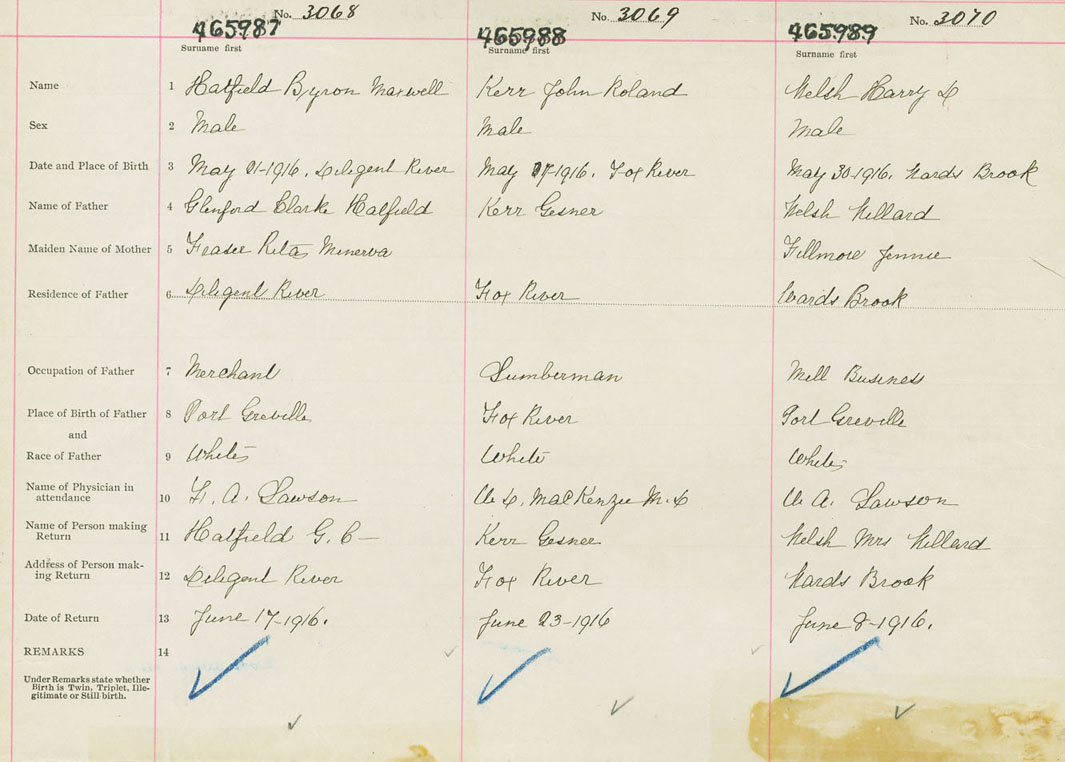 No. 3068 No. 3069 No. 3070
465987 465988 465989
Surname first Surname first Surname first
Name 1 Hatfield Byron Maxwell Kerr John Roland Welsh Harry D
Sex 2 Male Male Male
Date and Place of Birth 3 May 21-1916, Diligent River May 27-1916, Fox River May 30-1916, Wards Brook
Name of Father 4 Glenford Clarke Hatfield Kerr Gesner Welsh Willard
Maiden Name of Mother 5 Fraser Rita Minerva Fillmore Jennie
Residence of Father 6 Diligent River Fox River Wards Brook
Occupation of Father 7 Merchant Lumberman Mill Business
Place of Birth of Father 8 Port Greville Fox River Port Greville
and
Race of Father 9 White White White
Name of Physician in
attendance 10 F. A. Lawson MacKenzie M. D A. Lawson
Name of Person making
Return 11 Hatfield G. C— Kerr Gesner Welsh Mrs Willard
Address of Person mak-
ing Return 12 Diligent River Fox River Wards Brook
Date of Return 13 June 17-1916. June 23-1916 June 8-1916.
REMARKS 14
Under Remarks state whether
Birth is Twin, Triplet, Ille-
gitimate or Still birth.